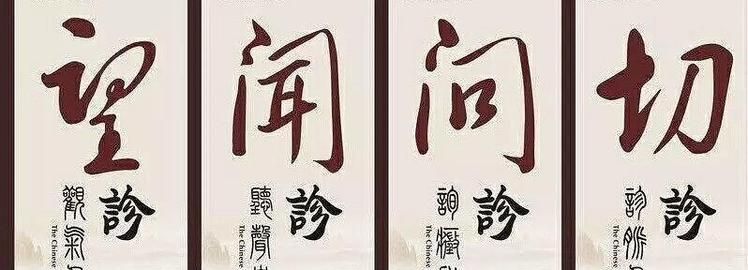 望
診
觀氣
The Chinese
聞
診
聽聲
The Chinese
問
診
詢
The Chinese
切
診
診脈
The Chinese